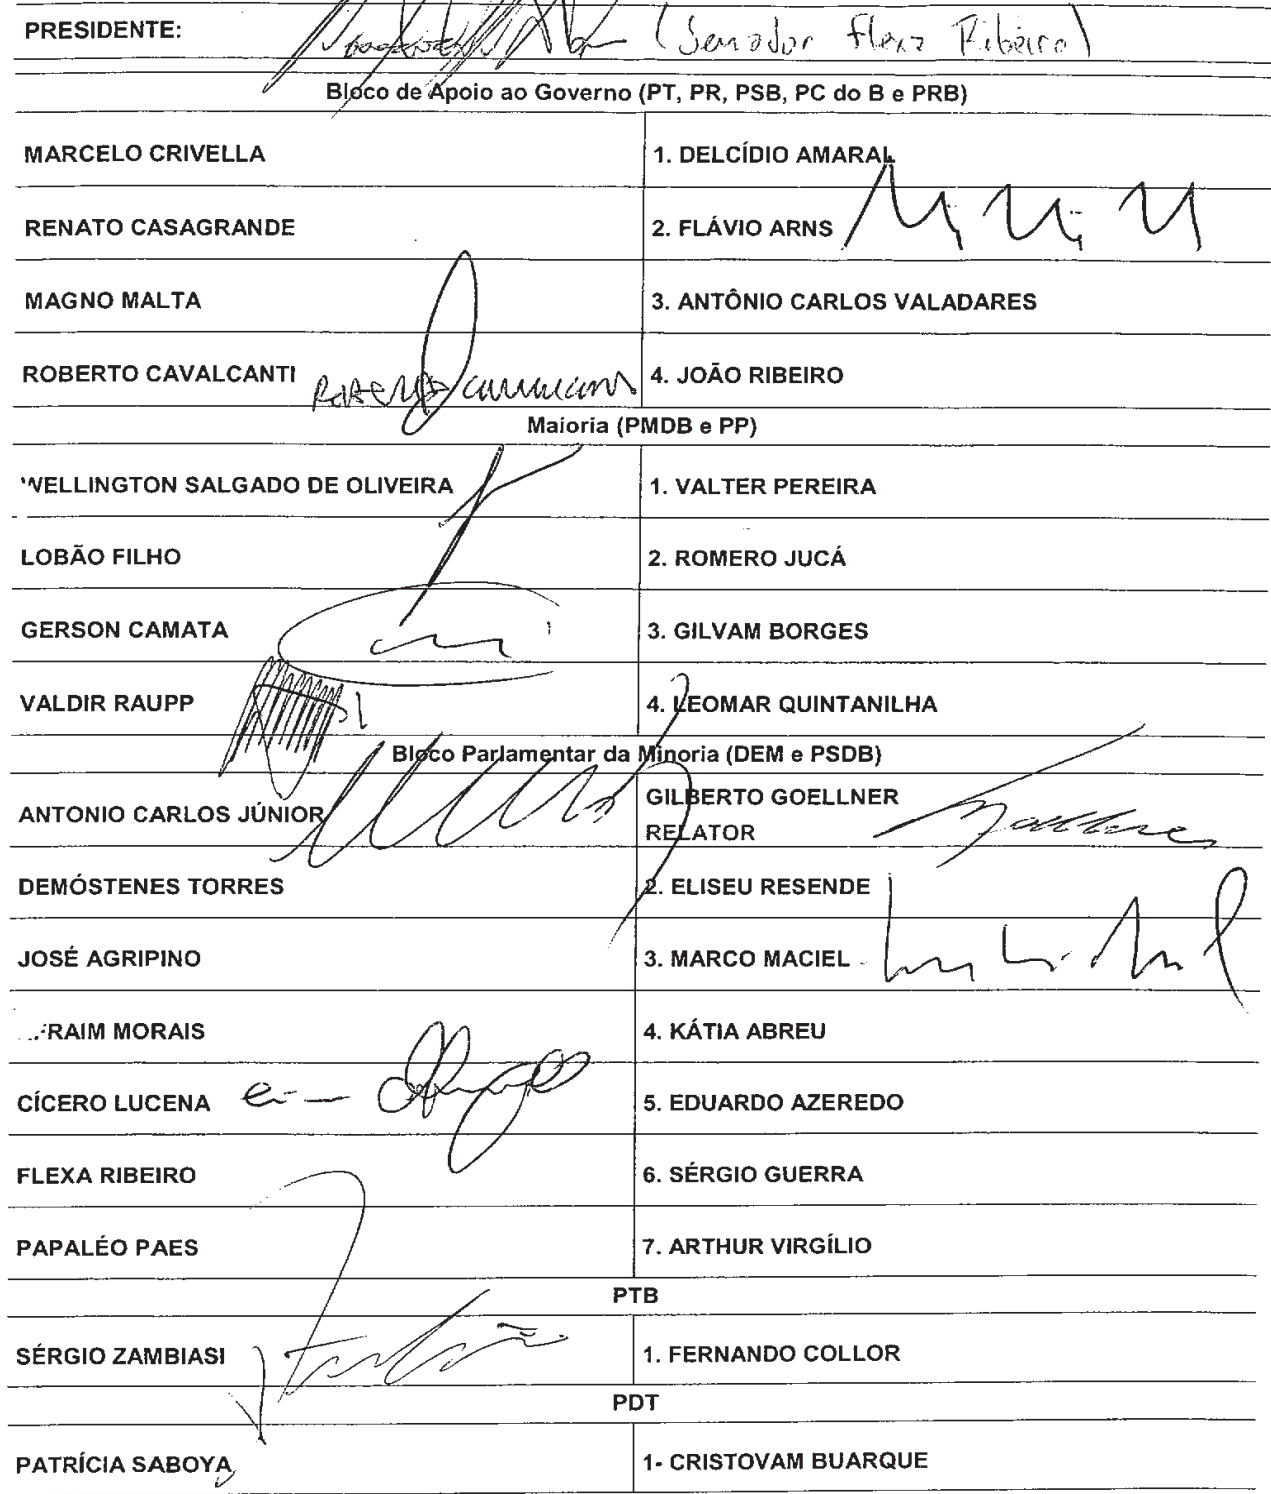 PRESIDENTE: (Senador Flexa Ribeiro)
Bloco de Apoio ao Governo (PT, PR, PSB, PC do B e PRB)
MARCELO CRIVELLA 1. DELCÍDIO AMARAL
RENATO CASAGRANDE 2. FLÁVIO ARNS
MAGNO MALTA 3. ANTÔNIO CARLOS VALADARES
ROBERTO CAVALCANTI 4. JOÃO RIBEIRO
Maioria (PMDB e PP)
WELLINGTON SALGADO DE OLIVEIRA 1. VALTER PEREIRA
LOBÃO FILHO 2. ROMERO JUCÁ
GERSON CAMATA 3. GILVAM BORGES
VALDIR RAUPP 4. LEOMAR QUINTANILHA
Bloco Parlamentar da Minoria (DEM e PSDB)
ANTONIO CARLOS JÚNIOR GILBERTO GOELLNER
RELATOR
DEMÓSTENES TORRES 2. ELISEU RESENDE
JOSÉ AGRIPINO 3. MARCO MACIEL
FRAIM MORAIS 4. KÁTIA ABREU
CÍCERO LUCENA 5. EDUARDO AZEREDO
FLEXA RIBEIRO 6. SÉRGIO GUERRA
PAPALÉO PAES 7. ARTHUR VIRGÍLIO
PTB
SÉRGIO ZAMBIASI 1. FERNANDO COLLOR
PDT
PATRÍCIA SABOYA 1- CRISTOVAM BUARQUE